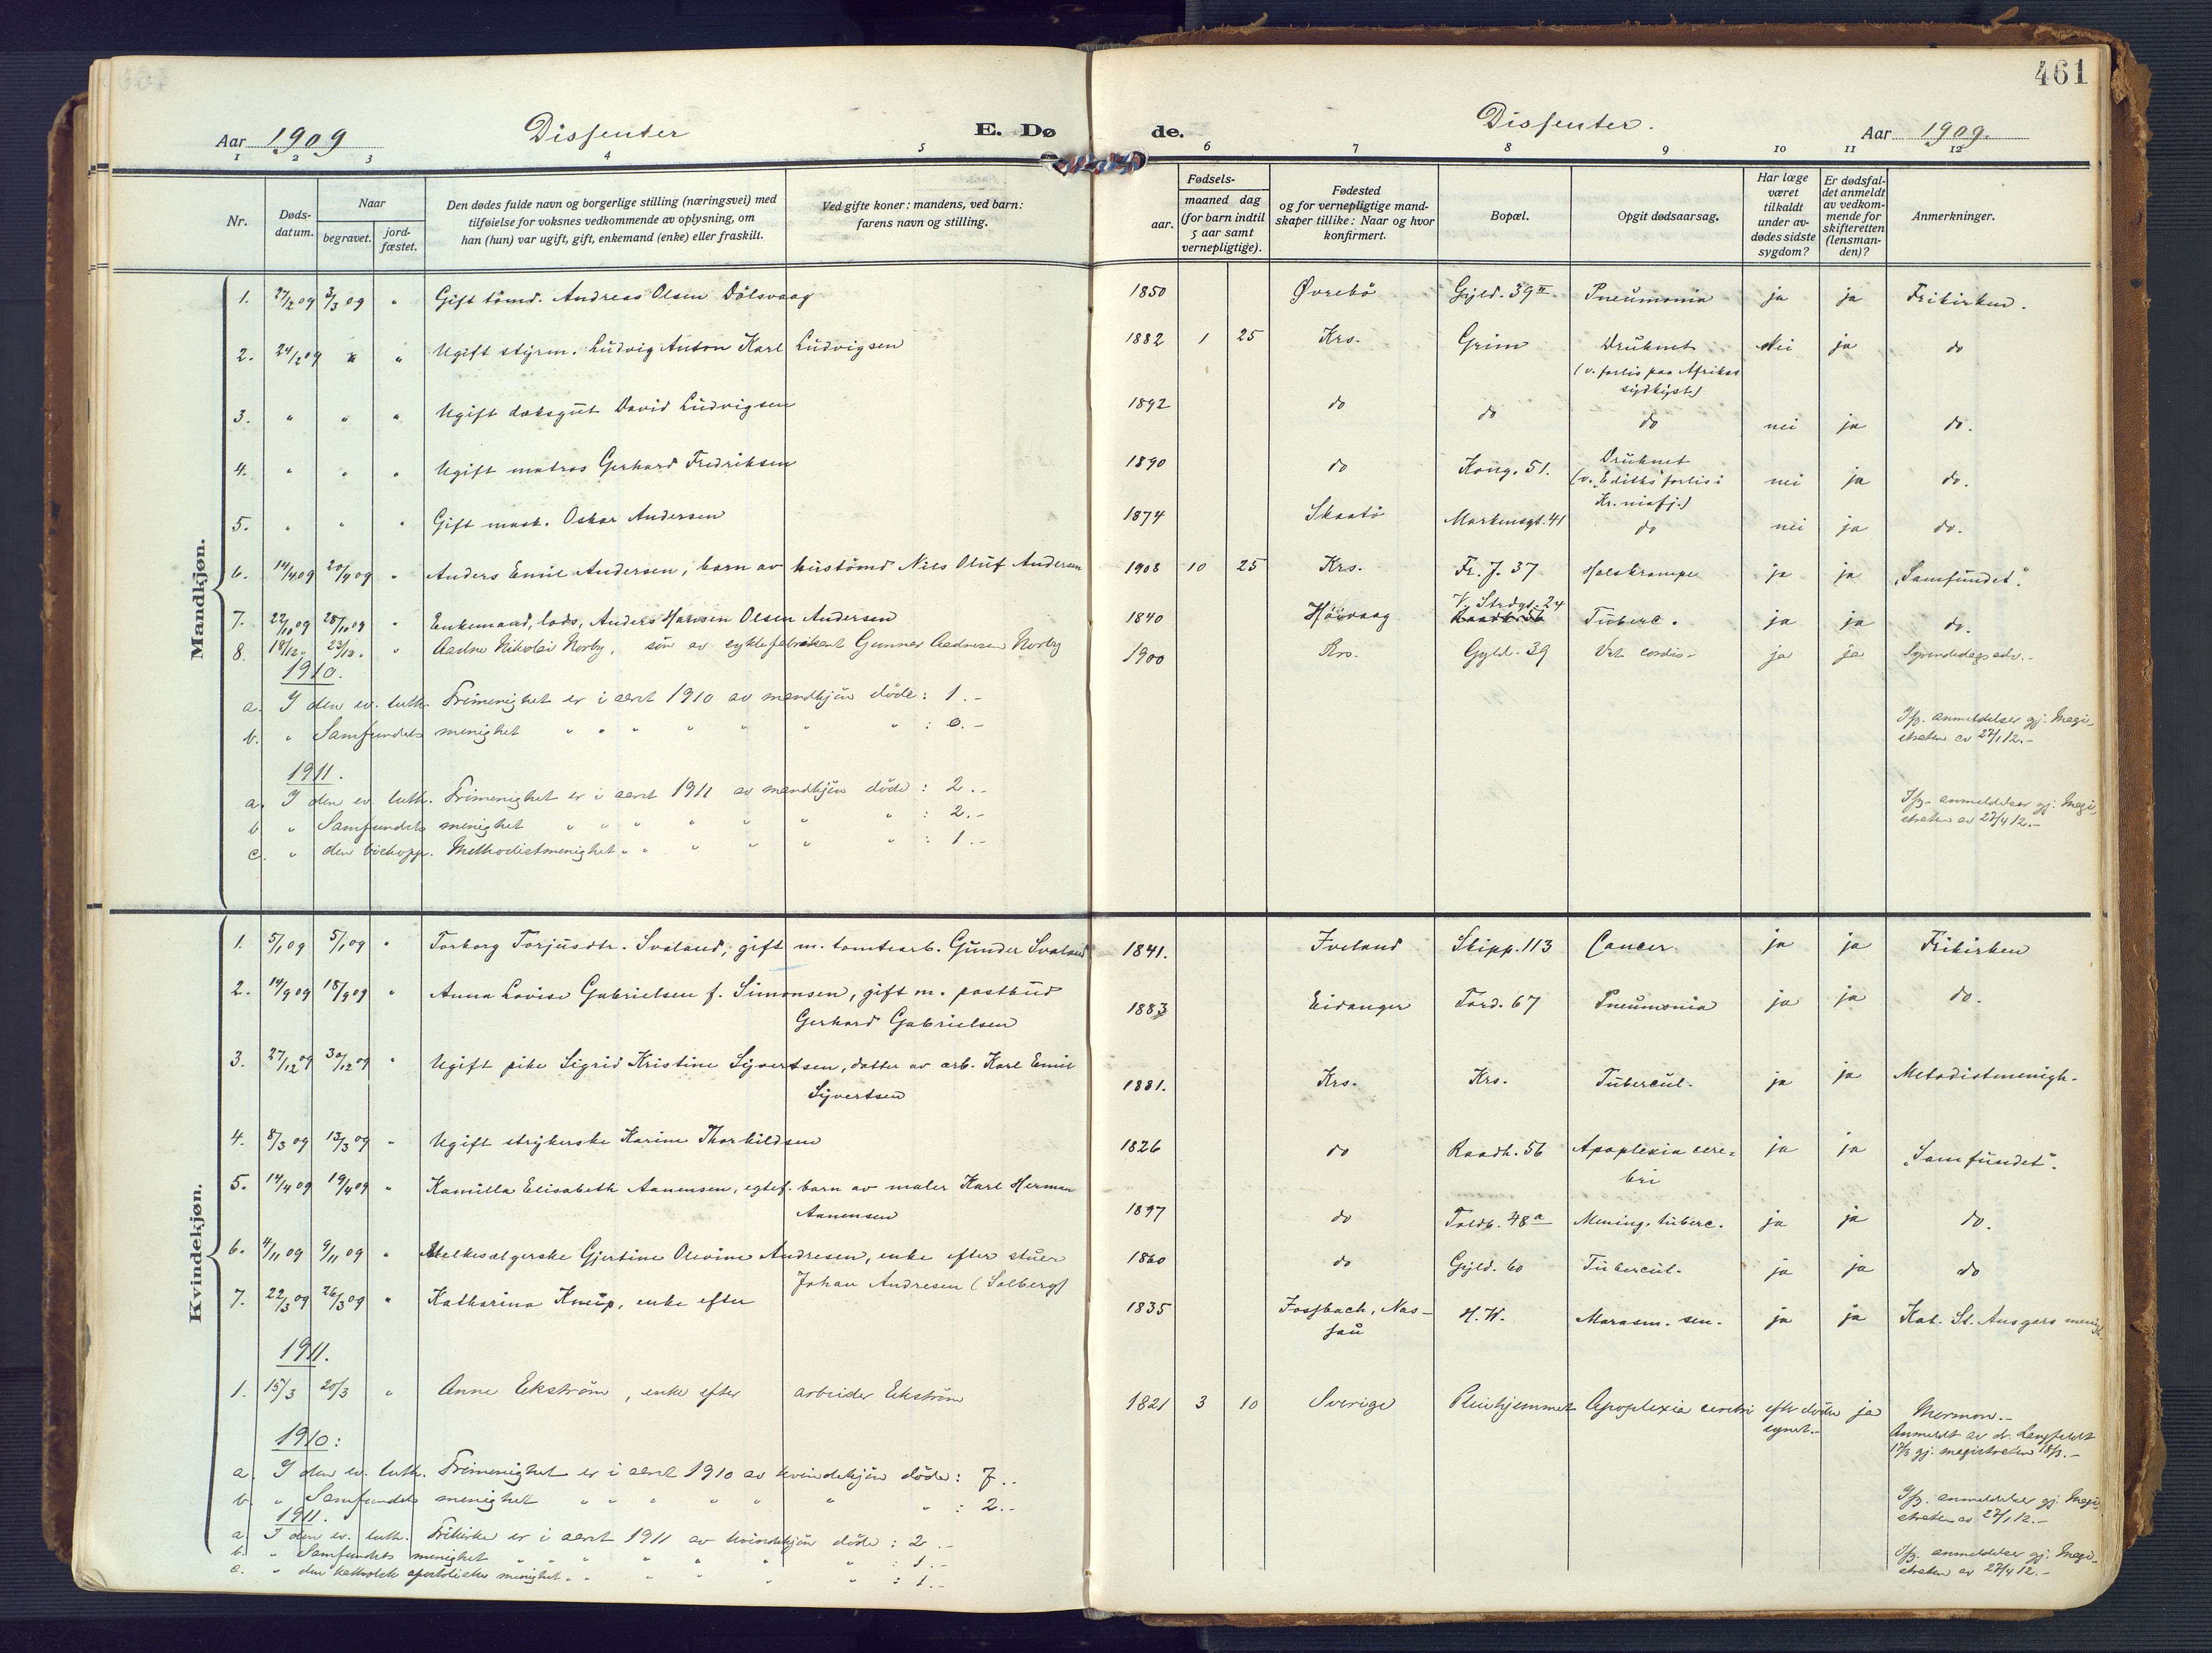 461
Aar 1909 Dissenter E. Dø de. Dissenter. Aar 1909.
1 2 3 4 5 6 7 8 9 10 11 12
Nr. Døds-datum. Naar begravet. jord-fæstet. Den dødes fulde navn og borgerlige stilling (næringsvei) med tilføielse for voksnes vedkommende av oplysning, om han (hun) var ugift, gift, enkemand (enke) eller fraskilt. Ved gifte koner: mandens, ved barn: farens navn og stilling. Fødsels- aar. maaned dag (for barn indtil 5 aar samt vernepligtige). Fødested og for vernepligtige mandskaper tillike: Naar og hvor konfirmert. Bopæl. Opgit dødsaarsag. Har læge været tilkaldt under avdødes sidste sygdom? Er dødsfaldet anmeldt av vedkommende for skifteretten (lensmanden)? Anmerkninger.
Mandkjøn.
1. 27/2 09 3/3 09 " Gift tömd. Andreas Olsen Dölsvaag 1850 Øvrebö Gyld. 39 II Pneumonia ja ja Frikirken.
2. 24/2 09 " " Ugift styrm. Ludvig Anton Karl Ludvigsen 1882 1 25 Krs. Grim Druknet nei ja do
(v. forlis paa Afrikas
sydkyst)
3. " " " Ugift daksgut David Ludvigsen 1892 do do do nei ja do.
4. " " " Ugift matros Gerhard Fredriksen 1890 do Kong. 51. Druknet nei ja do.
(v. "Ediths" forlis i
Kr.niafj.)
5. " " " Gift mask. Oskar Andersen 1874 Skaatö Markensgt. 41 do nei ja do.
6. 14/4 09 20/4 09 " Anders Emil Andersen, barn av hustömd Nils Oluf Andersen 1908 10 25 Krs. Fr. J. 37 Halskrampe ja ja "Samfundet".
7. 22/10 09 28/10 09 " Enkemand, lods, Anders Hansen Olsen Andersen 1840 Hövaag V. Strdgt. 24 Tuberc. ja ja do.
Raadh. 56
8. 18/12 " 23/12 " " Aadne Nikolai Norby, sön av cyklefabrikant Gunnar Aadnesen Norby 1900 Krs. Gyld. 39 Vit. cordis ja ja Syvendedags adv.-
1910.
a. I den ev. luth. Frimenighet er i aaret 1910 av mandkjön döde: 1.-
b. " Samfundets menighet " " " " " " " : 0.- Ifg. anmeldelser gj. Magi-
straten av 27/1 12.-
1911.
a. I den ev. luth. Frimenighet er i aaret 1911 av mandkjön döde: 2.- Ifg. anmeldelser gj. Magi-
b. " Samfundets menighet " " " " " " : 2.- straten av 27/4 12.-
c. " den biskopp. Methodistmenighet " " " " " " : 1.-
Kvindekjøn.
1. 5/1 09 5/1 09 " Torborg Torjusdtr. Svaland, gift m. tomtearb. Gunder Svaland 1841. Iveland Skipp. 113 Cancer ja ja Frikirken
2. 14/9 09 18/9 09 " Anna Lovise Gabrielsen f. Simonsen, gift m. postbud 1883 Eidanger Tord. 67 Pneumonia ja ja do.
Gerhard Gabrielsen
3. 27/12 09 30/12 09 " Ugift pike Sigrid Kristine Syvertsen, datter av arb. Karl Emil 1881. Krs. Krs. Tubercul. ja ja Metodistmenigh.
Syvertsen
4. 8/3 09 13/3 09 " Ugift strykerske Karine Thorkildsen 1826 do Raadh. 56 Apoplexia cere= ja ja "Samfundet".
bri
5. 14/4 09 19/4 09 " Kamilla Elisabeth Aanensen, egtef. barn av maler Karl Herman 1897 do Toldb. 48 a Mening. tuberc. ja ja do.
Aanensen
6. 4/11 09 9/11 09 " Melkesælgerske Gjertine Olevine Andresen, enke efter stuer 1860 do Gyld. 60 Tubercul. ja ja do
Johan Andresen (Solberg)
7. 22/3 09 26/3 09 " Katharina Kneip, enke efter 1835 Fossbach, Nas- H. W. Marasm. sen. ja ja Kat. St. Ansgars menigh.
sau
1911.
1. 15/3 20/3 " Anne Ekström, enke efter arbeider Ekström 1821 3 10 Sverige Pleiehjemmet Apoplexia cerebri eftr döden ja Mormon.-
synet.- Anmeldt av d. Langfeldt
17/3 gj. magistraten 18/3.-
1910:
a. I den ev. luth. Frimenighet er i aaret 1910 av kvindekjön döde: 7.-
b. " Samfundets menighet " " " " " " " : 2.- Ifg. anmeldelser gj. Magi-
straten av 27/1 12.-
1911.
a. I den ev. luth. Frikirke er i aaret 1911 av kvindekjön döde: 2.-
b. " Samfundets menighet " " " " " " : 1.- Ifg. anmeldelser gj. Magi-
c. " den katholsk apostoliske menighet " " " " " : 1.- straten av 27/4 12.-